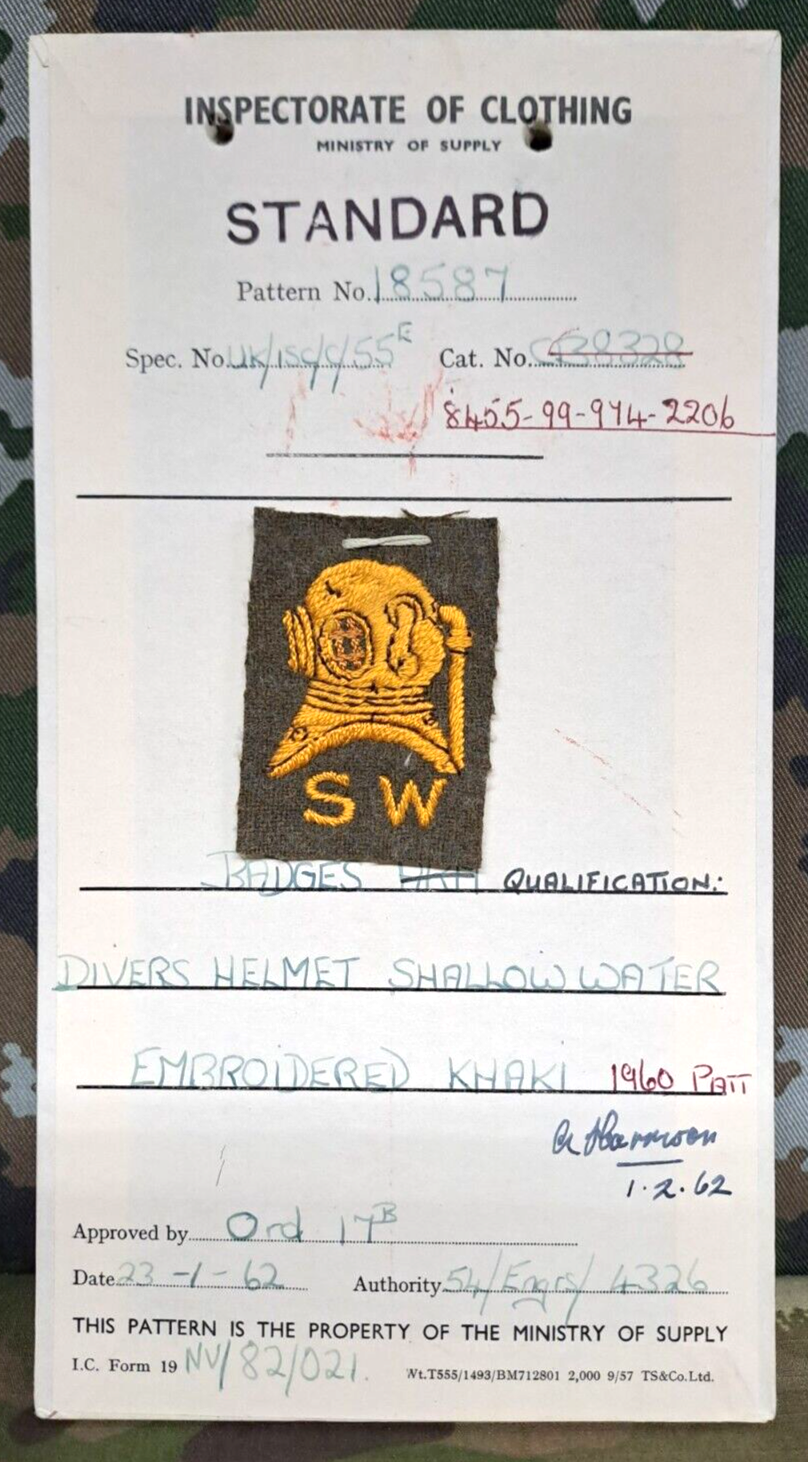 INSPECTORATE OF CLOTHING
MINISTRY OF SUPPLY
STANDARD
Pattern No. 18587
Spec. No. UK/ISC/C/55E Cat. No. CF38328
8455-99-974-2206
S W
BADGES QUALIFICATION:
DIVERS HELMET SHALLOW WATER
EMBROIDERED KHAKI 1960 PATT
1.2.62
Approved by Ord 17B
Date 23-1-62 Authority 54/Engrs/4326
THIS PATTERN IS THE PROPERTY OF THE MINISTRY OF SUPPLY
I.C. Form 19 NV/82/021.
Wt.T555/1493/BM712801 2,000 9/57 TS&Co.Ltd.